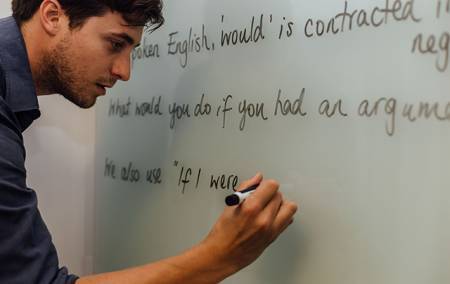 spoken English, 'would' is contracted in
neg
What would you do, if you had an argume
We also use "If I were